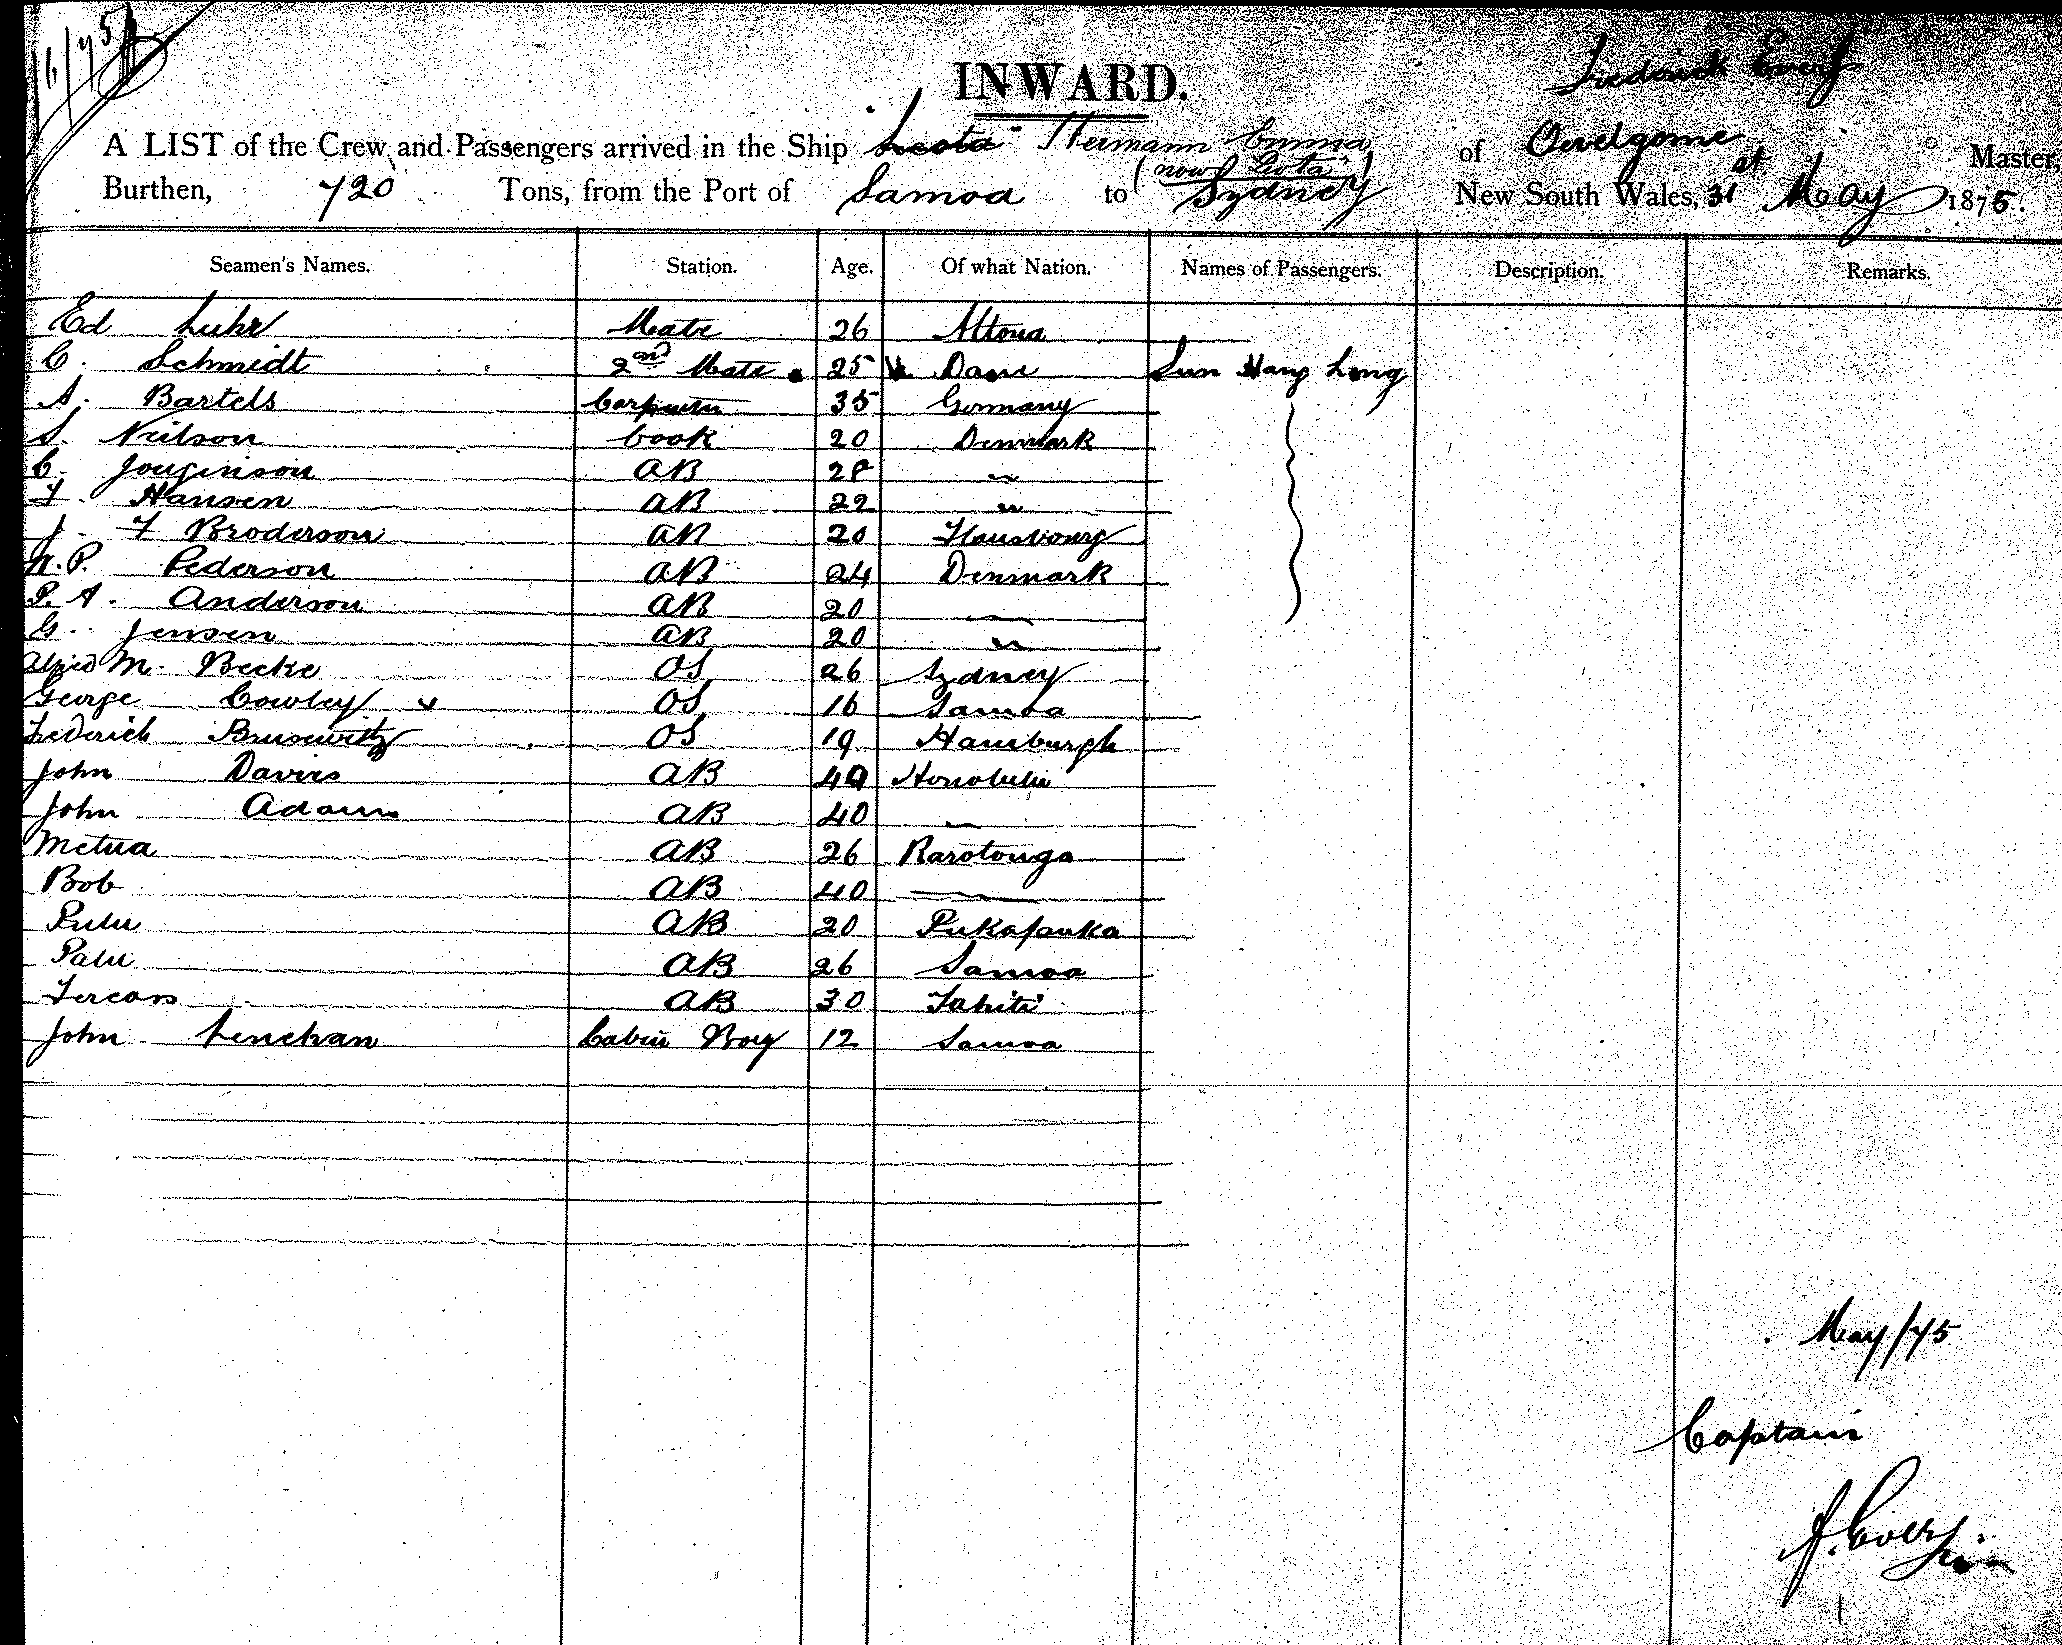 16/75
INWARD.
Frederick Evers
A LIST of the Crew and Passengers arrived in the Ship Hermann Emma of Oevelgonne Master,
(now Lota)
Burthen, 720 Tons, from the Port of Samoa to Sydney New South Wales, 31st May 1875.
Seamen's Names. Station. Age. Of what Nation. Names of Passengers. Description. Remarks.
Ed Luhr Mate 26 Altona
C. Schmidt 2nd Mate 25 Dane Sun Hang Long
A. Bartels Carpenter 35 Germany
S. Neilson Cook 20 Denmark
C. Jourginson AB 28 "
F. Hansen AB 22 "
J. F Broderson AB 20
H. P. Pederson AB 24 Denmark
P. A. Anderson AB 20 "
G. Jensen AB 20 "
Alfred M. Becke OS 26 Sydney
George Cowley x OS 16 Samoa
Frederick Brusewitz OS 19 Hamburgh
John Davies AB 40 Honolulu
John Adams AB 40 "
Metua AB 26 Rarotonga
Bob AB 40 "
Pulu AB 20 Pukapuka
Palu AB 26 Samoa
AB 30 Tahiti
John Lenehan Cabin Boy 12 Samoa
May/75
Captain
F. Evers